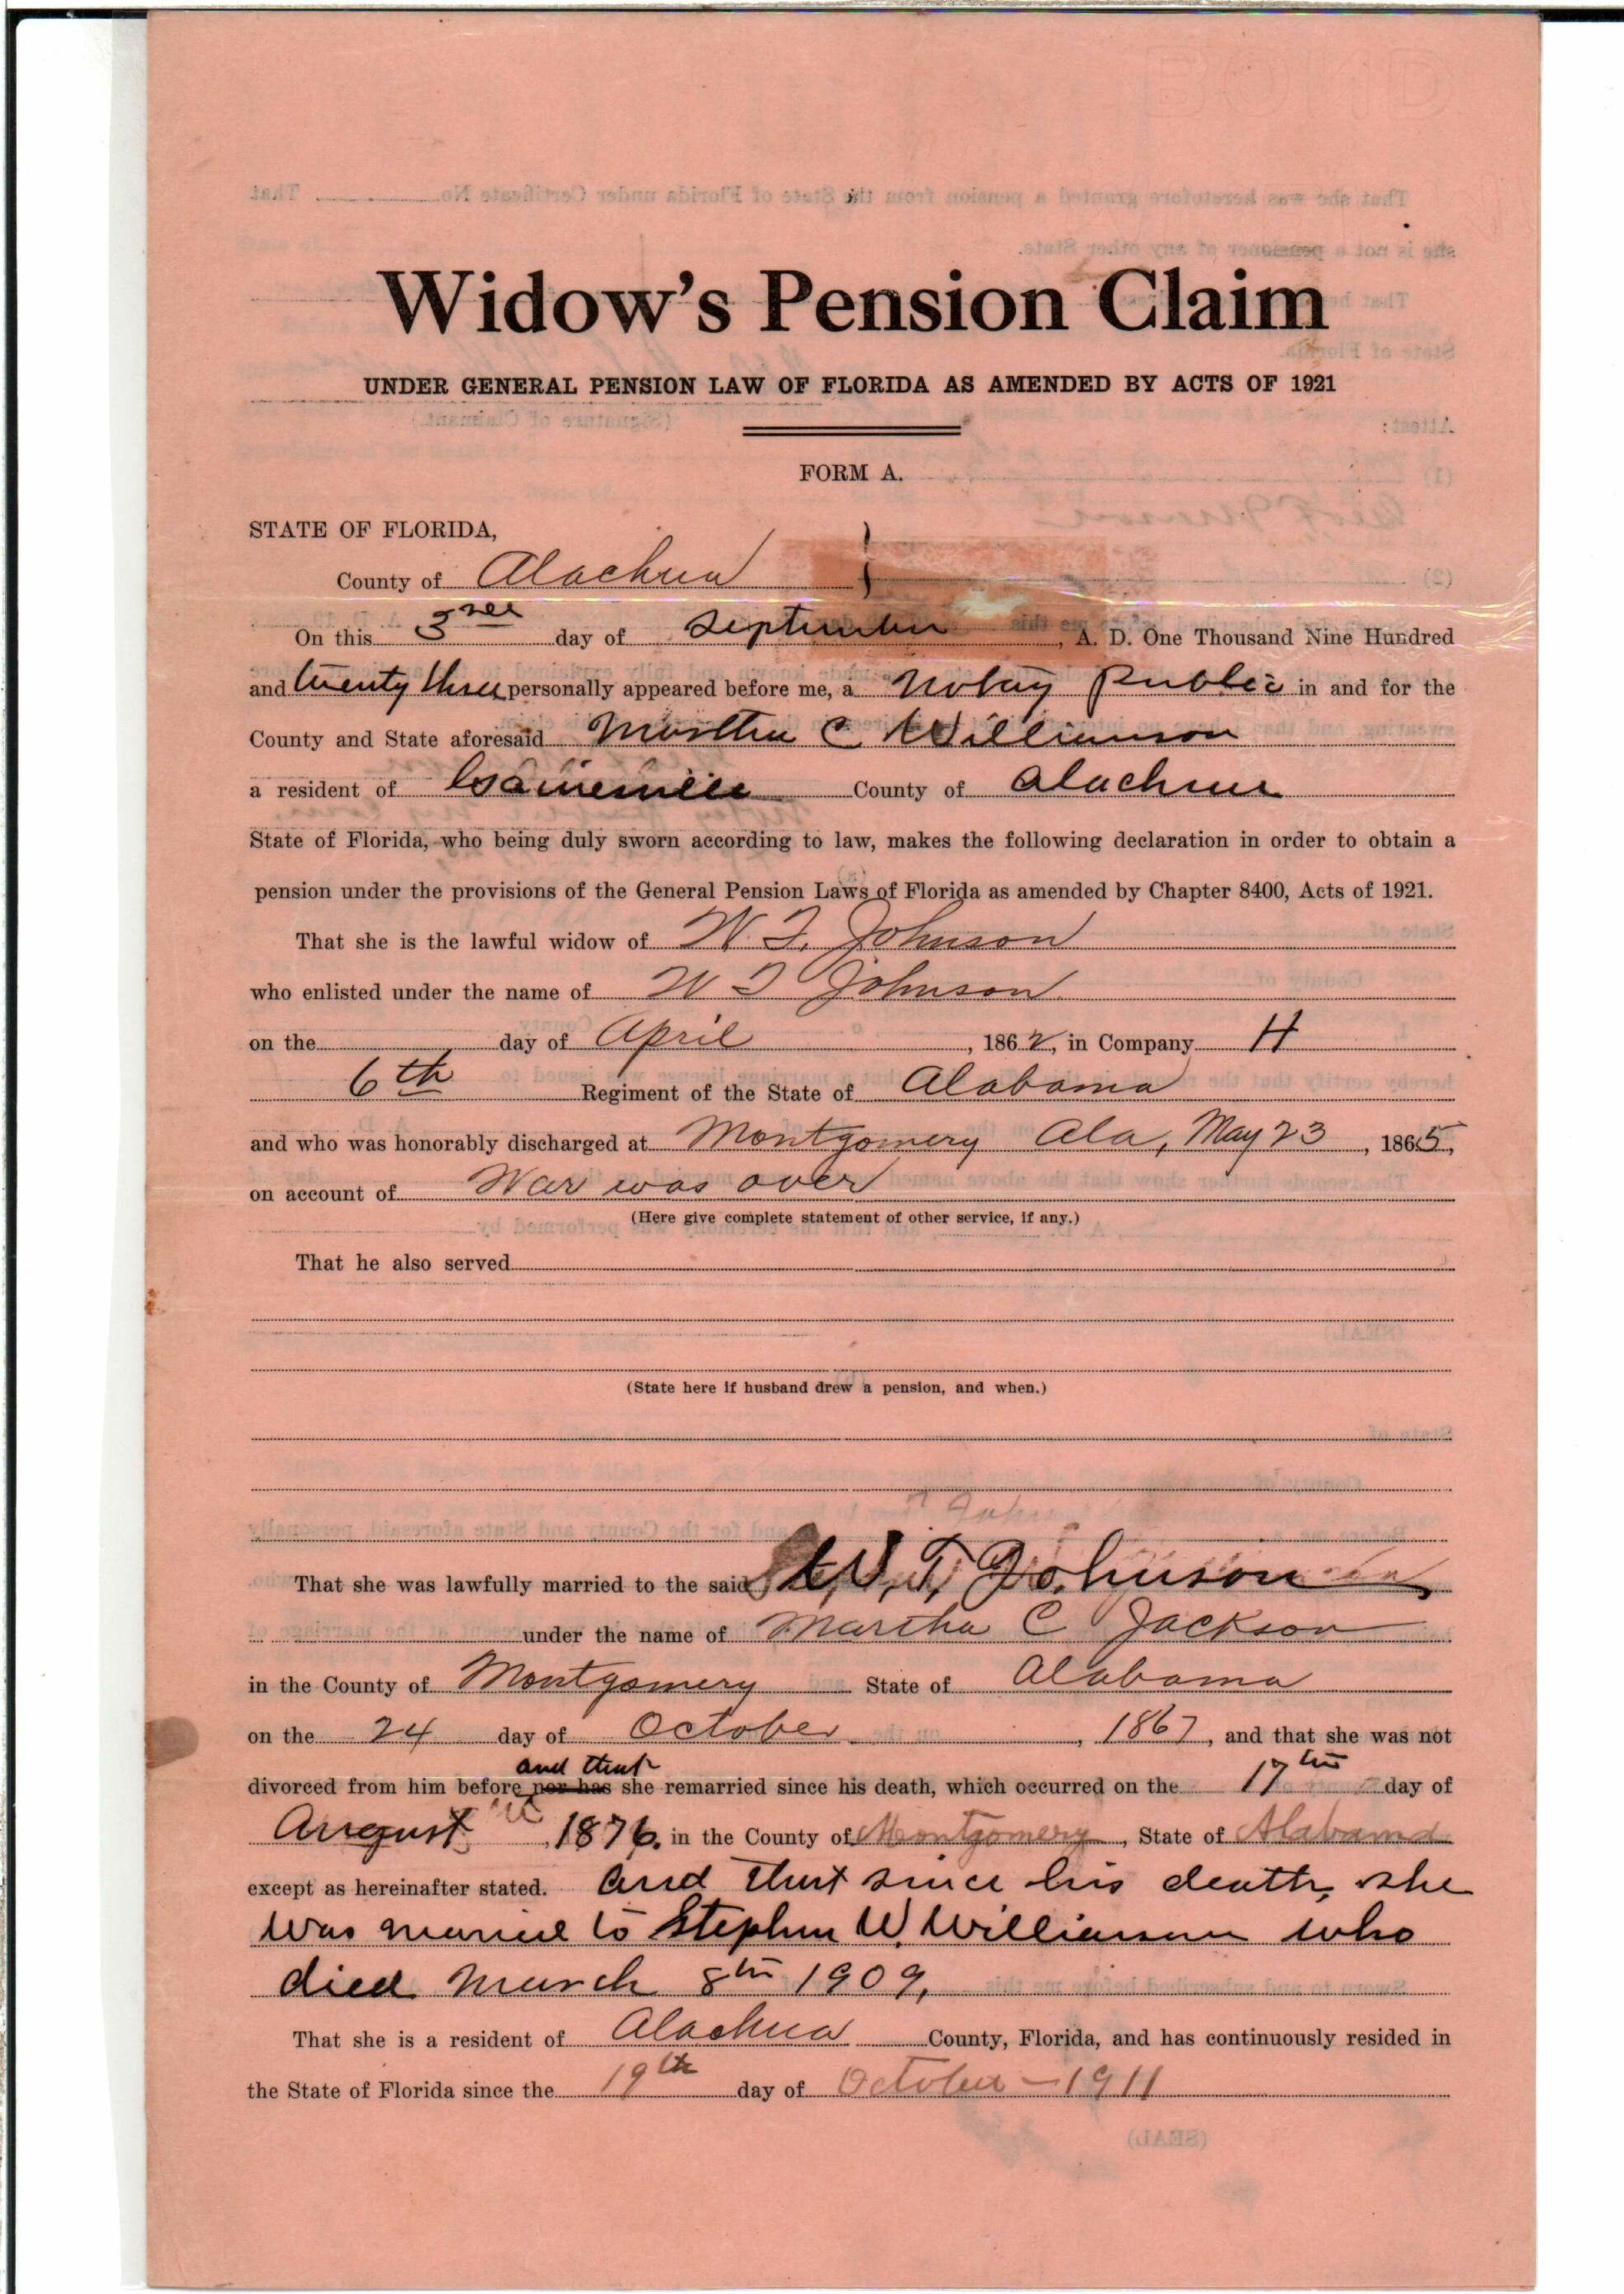 Widow's Pension Claim
UNDER GENERAL PENSION LAW OF FLORIDA AS AMENDED BY ACTS OF 1921
FORM A.
STATE OF FLORIDA,
County of Alachua
On this 3rd day of September, A. D. One Thousand Nine Hundred
and twenty three personally appeared before me, a Notary Public in and for the
County and State aforesaid Martha C Williamson
a resident of Gainesville County of Alachua
State of Florida, who being duly sworn according to law, makes the following declaration in order to obtain a
pension under the provisions of the General Pension Laws of Florida as amended by Chapter 8400, Acts of 1921.
That she is the lawful widow of W. T. Johnson
who enlisted under the name of W T Johnson
on the day of April, 1862, in Company H
6th Regiment of the State of Alabama
and who was honorably discharged at Montgomery Ala, May 23, 1865,
on account of War was over
(Here give complete statement of other service, if any.)
That he also served
(State here if husband drew a pension, and when.)
That she was lawfully married to the said W. T. Johnson
under the name of Martha C Jackson
in the County of Montgomery State of Alabama
on the 24 day of October, 1867, and that she was not
and that
divorced from him before nor has she remarried since his death, which occurred on the 17th day of
August, 1876. in the County of Montgomery, State of Alabama
except as hereinafter stated. and that since his death, she
was married to Stephen W. Williamson who
died March 8th 1909,
That she is a resident of Alachua County, Florida, and has continuously resided in
the State of Florida since the 19th day of October - 1911